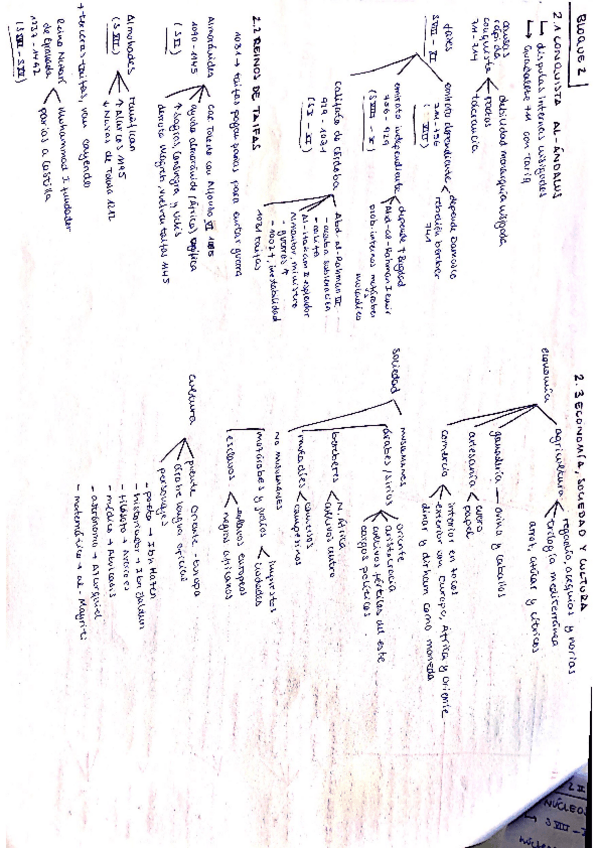 BLOQUE 2
2.1 CONQUISTA AL-ÁNDALUS
↳ disputas internas visigodas
↳ Guadalete 711 con Tariq
causas rápida conquista 711-714
debilidad monarquía visigoda
pactos
tolerancia
fases
SVIII - XV
emirato dependiente
711-756
(SVIII)
depende Damasco
rebelión béreber 741
emirato independiente
756-929
(SVIII - X)
depende ↑ Bagdad
Abd-al-Rahman I emir
prob. internos mozárabes muladíes
califato de Córdoba
929-1031
(SX - XI)
Abd-al-Rahman III
- califa
- acaba sublevación
Al-Hakam II esplendor
Almanzor, ministro
- guerras ↑
- 1002 †, inestabilidad
1031 taifas
2.2 REINOS DE TAIFAS
1031 → taifas pagan parias para evitar guerra
Almorávides
1090-1145
(SXI)
cae Toledo con Alfonso VI 1085
ayuda almorávide (África) unifica
↑ Sagrajas, Consuegra y Uclés
derrota, vuelven taifas 1145
Almohades
(SXII)
reunifican
↑ Alarcos 1195
↓ Navas de Tolosa 1212
→ terceras taifas, van cayendo
Reino Nazarí de Granada
1237-1492
(SXIII - SXV)
Muhammad I fundador
parias a Castilla
2.3 ECONOMÍA, SOCIEDAD Y CULTURA
economía
agricultura
regadío, acequias y norias
trilogía mediterránea
arroz, azúcar y cítricos
ganadería — ovina y caballos
artesanía
cuero
papel
comercio
interior en zocos
exterior con Europa, África y Oriente
dinar y dirham como moneda
sociedad
musulmanes
árabes, sirios
oriente
aristocracia
cultivos fértiles del este
cargos políticos
bereberes
N. África
cultivos centro
muladíes
conversos
campesinos
no musulmanes
mozárabes y judíos
impuestos
ciudades
esclavos
eslavos europeos
negros africanos
cultura
puente Oriente - Europa
árabe lengua oficial
personajes
- poeta → Ibn Hazen
- historiador → Ibn Jaldun
- filósofo → Averroes
- médico → Avicena
- astrónomo → Azarquiel
- matemático → al-Mayriti
NÚCLEOS